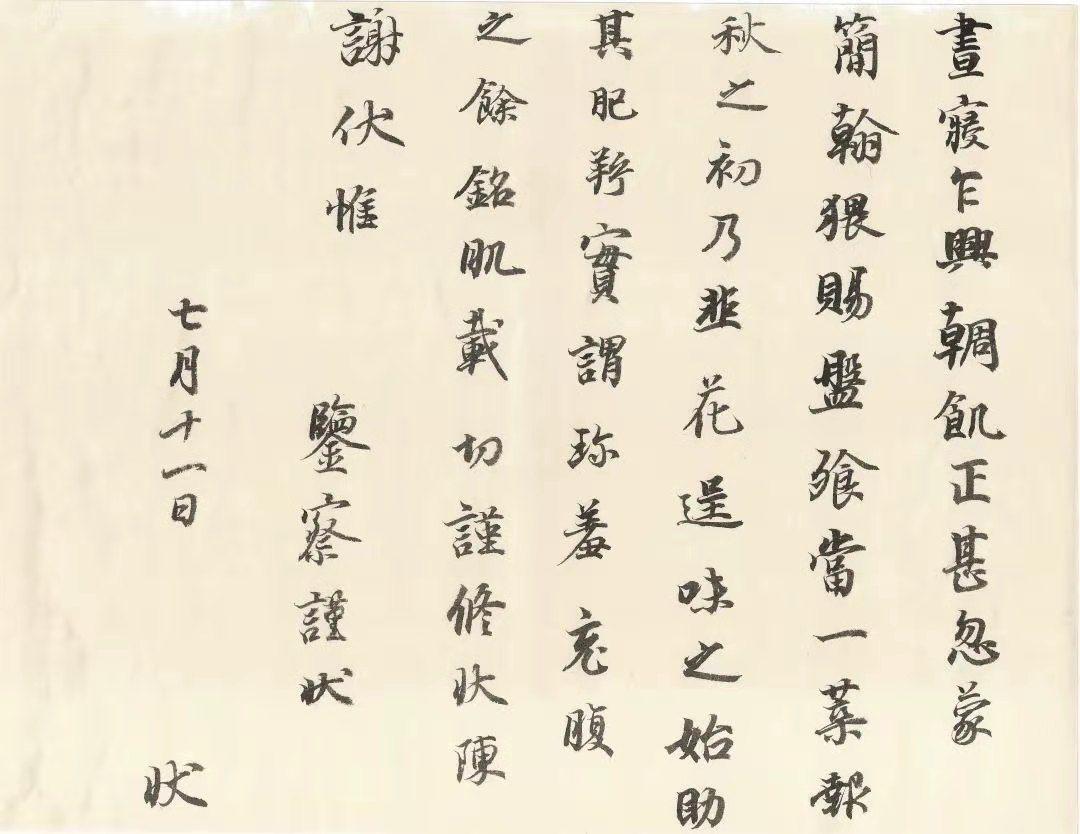 晝寢乍興輖飢正甚忽蒙
簡翰猥賜盤飱當一葉報
秋之初乃韭花逞味之始助
其肥羜實謂珍羞充腹
之餘銘肌載切謹修狀陳
謝伏惟
鑒察謹狀
七月十一日
狀